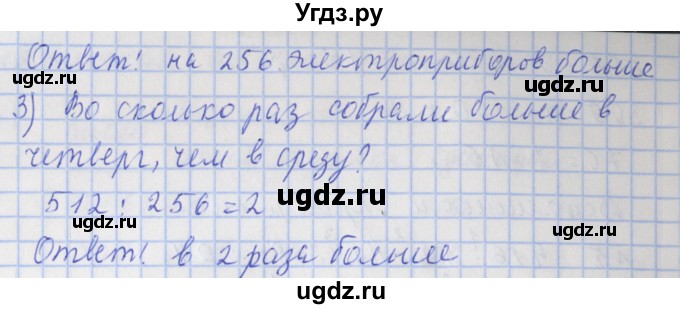 Угдз.ру
Ответ! на 256 электроприборов больше
3) Во сколько раз собрали больше в
четверг, чем в среду?
512 : 256 = 2
Ответ! в 2 раза больше
ugdz.ru
ugdz.ru
ugdz.ru
ugdz.ru
ugdz.ru
ugdz.ru
ugdz.ru
ugdz.ru